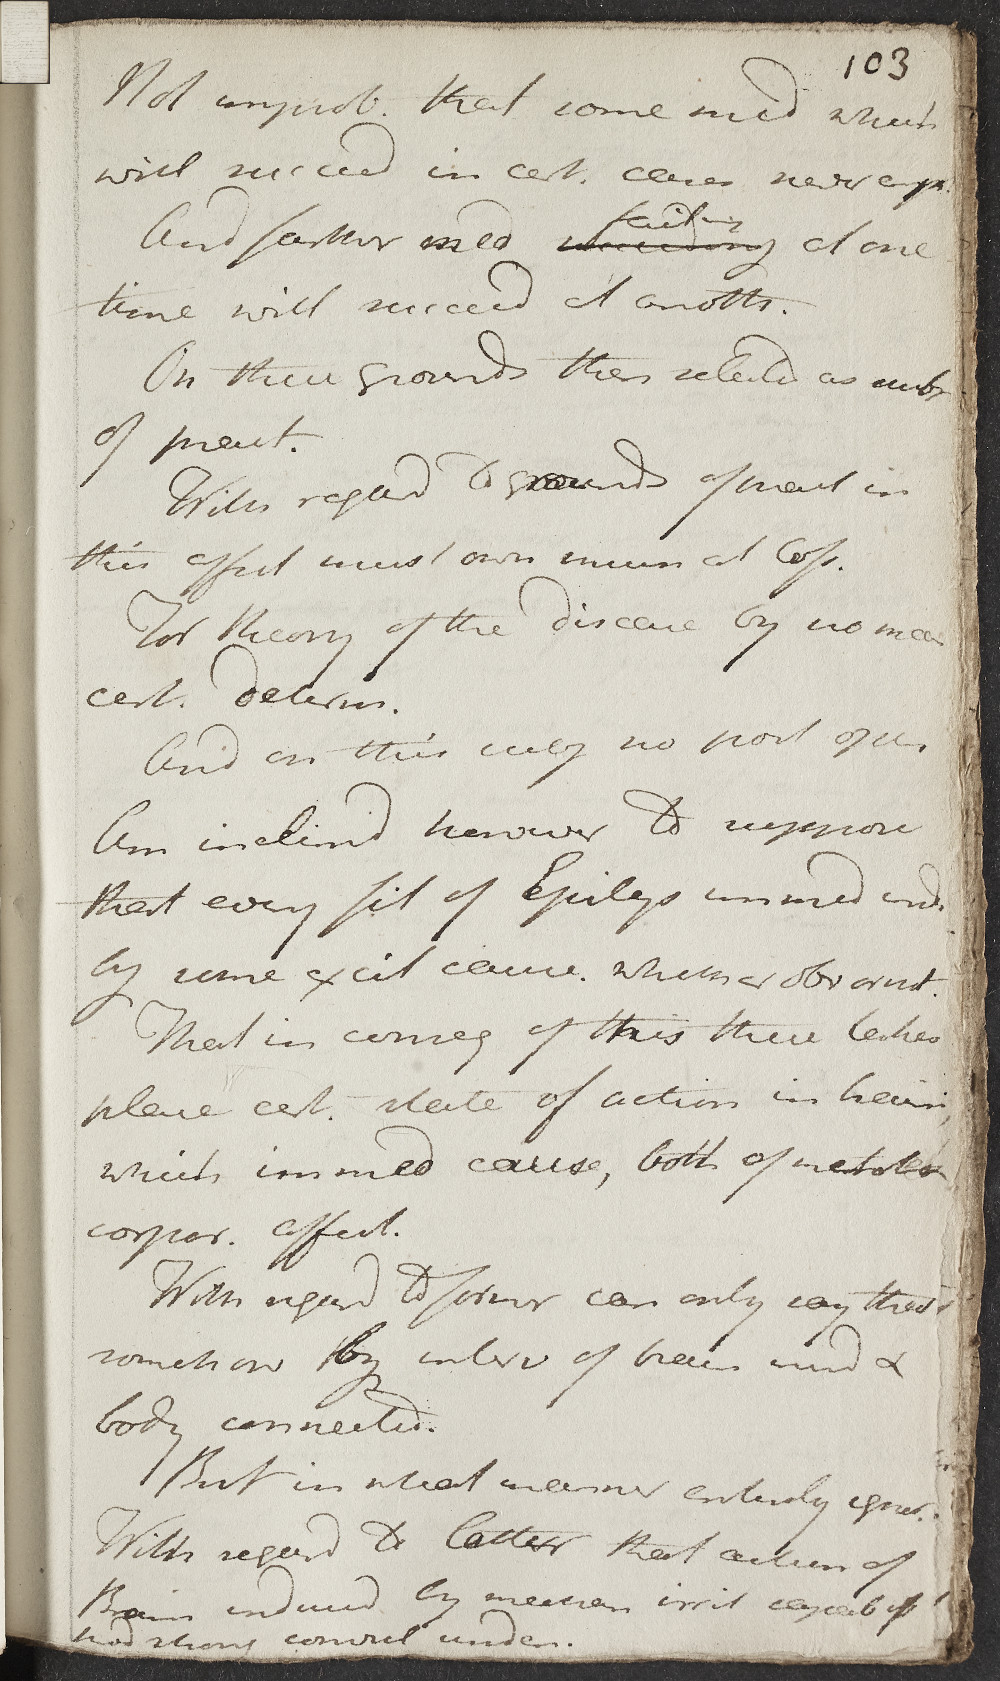 103
Not improb. that some med which
will succeed in cert. cases never emp.
And farther med failing at one
time will succeed at anothr.
On these grounds then selected as
of pract.
With regard to grounds of pract in
this affect must own mum at loss.
For theory of the disease by no mean
cert. determ.
And on this subj no part of
Am inclin'd however to suppose
that every fit of Epileps immed ind.
by some excit cause. whether obv or not.
That in conseq of this there takes
place cert. state of action in brain,
which immed cause, both of
corpor. affect.
With regard to former can only say that
somehow by interv of brain mind &
body connected.
But in what manner entirely ignor.
With regard to latter that action of
Brain induced by mechan irrit
had strong convul